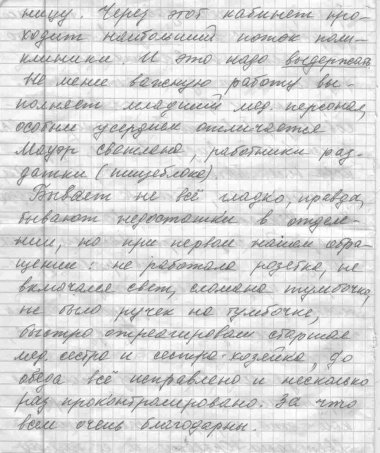 ницу. Через этот кабинет про-
ходит наибольший поток поли-
клиники. И это надо выдержать.
Не менее важную работу вы-
полняет младший мед. персонал,
особым усердием отличается
Мауэр Светлана, работники раз-
датки (пищеблока)
Бывает не всё гладко, правда,
бывают недостатки в отделе-
нии, но при первом нашем обра-
щении: не работала розетка, не
включался свет, сломана тумбочка,
не было ручек на тумбочке,
быстро отреагировали старшая
мед. сестра и сестра-хозяйка, до
обеда всё исправлено и несколько
раз проконтролировано. За что
всем очень благодарны.